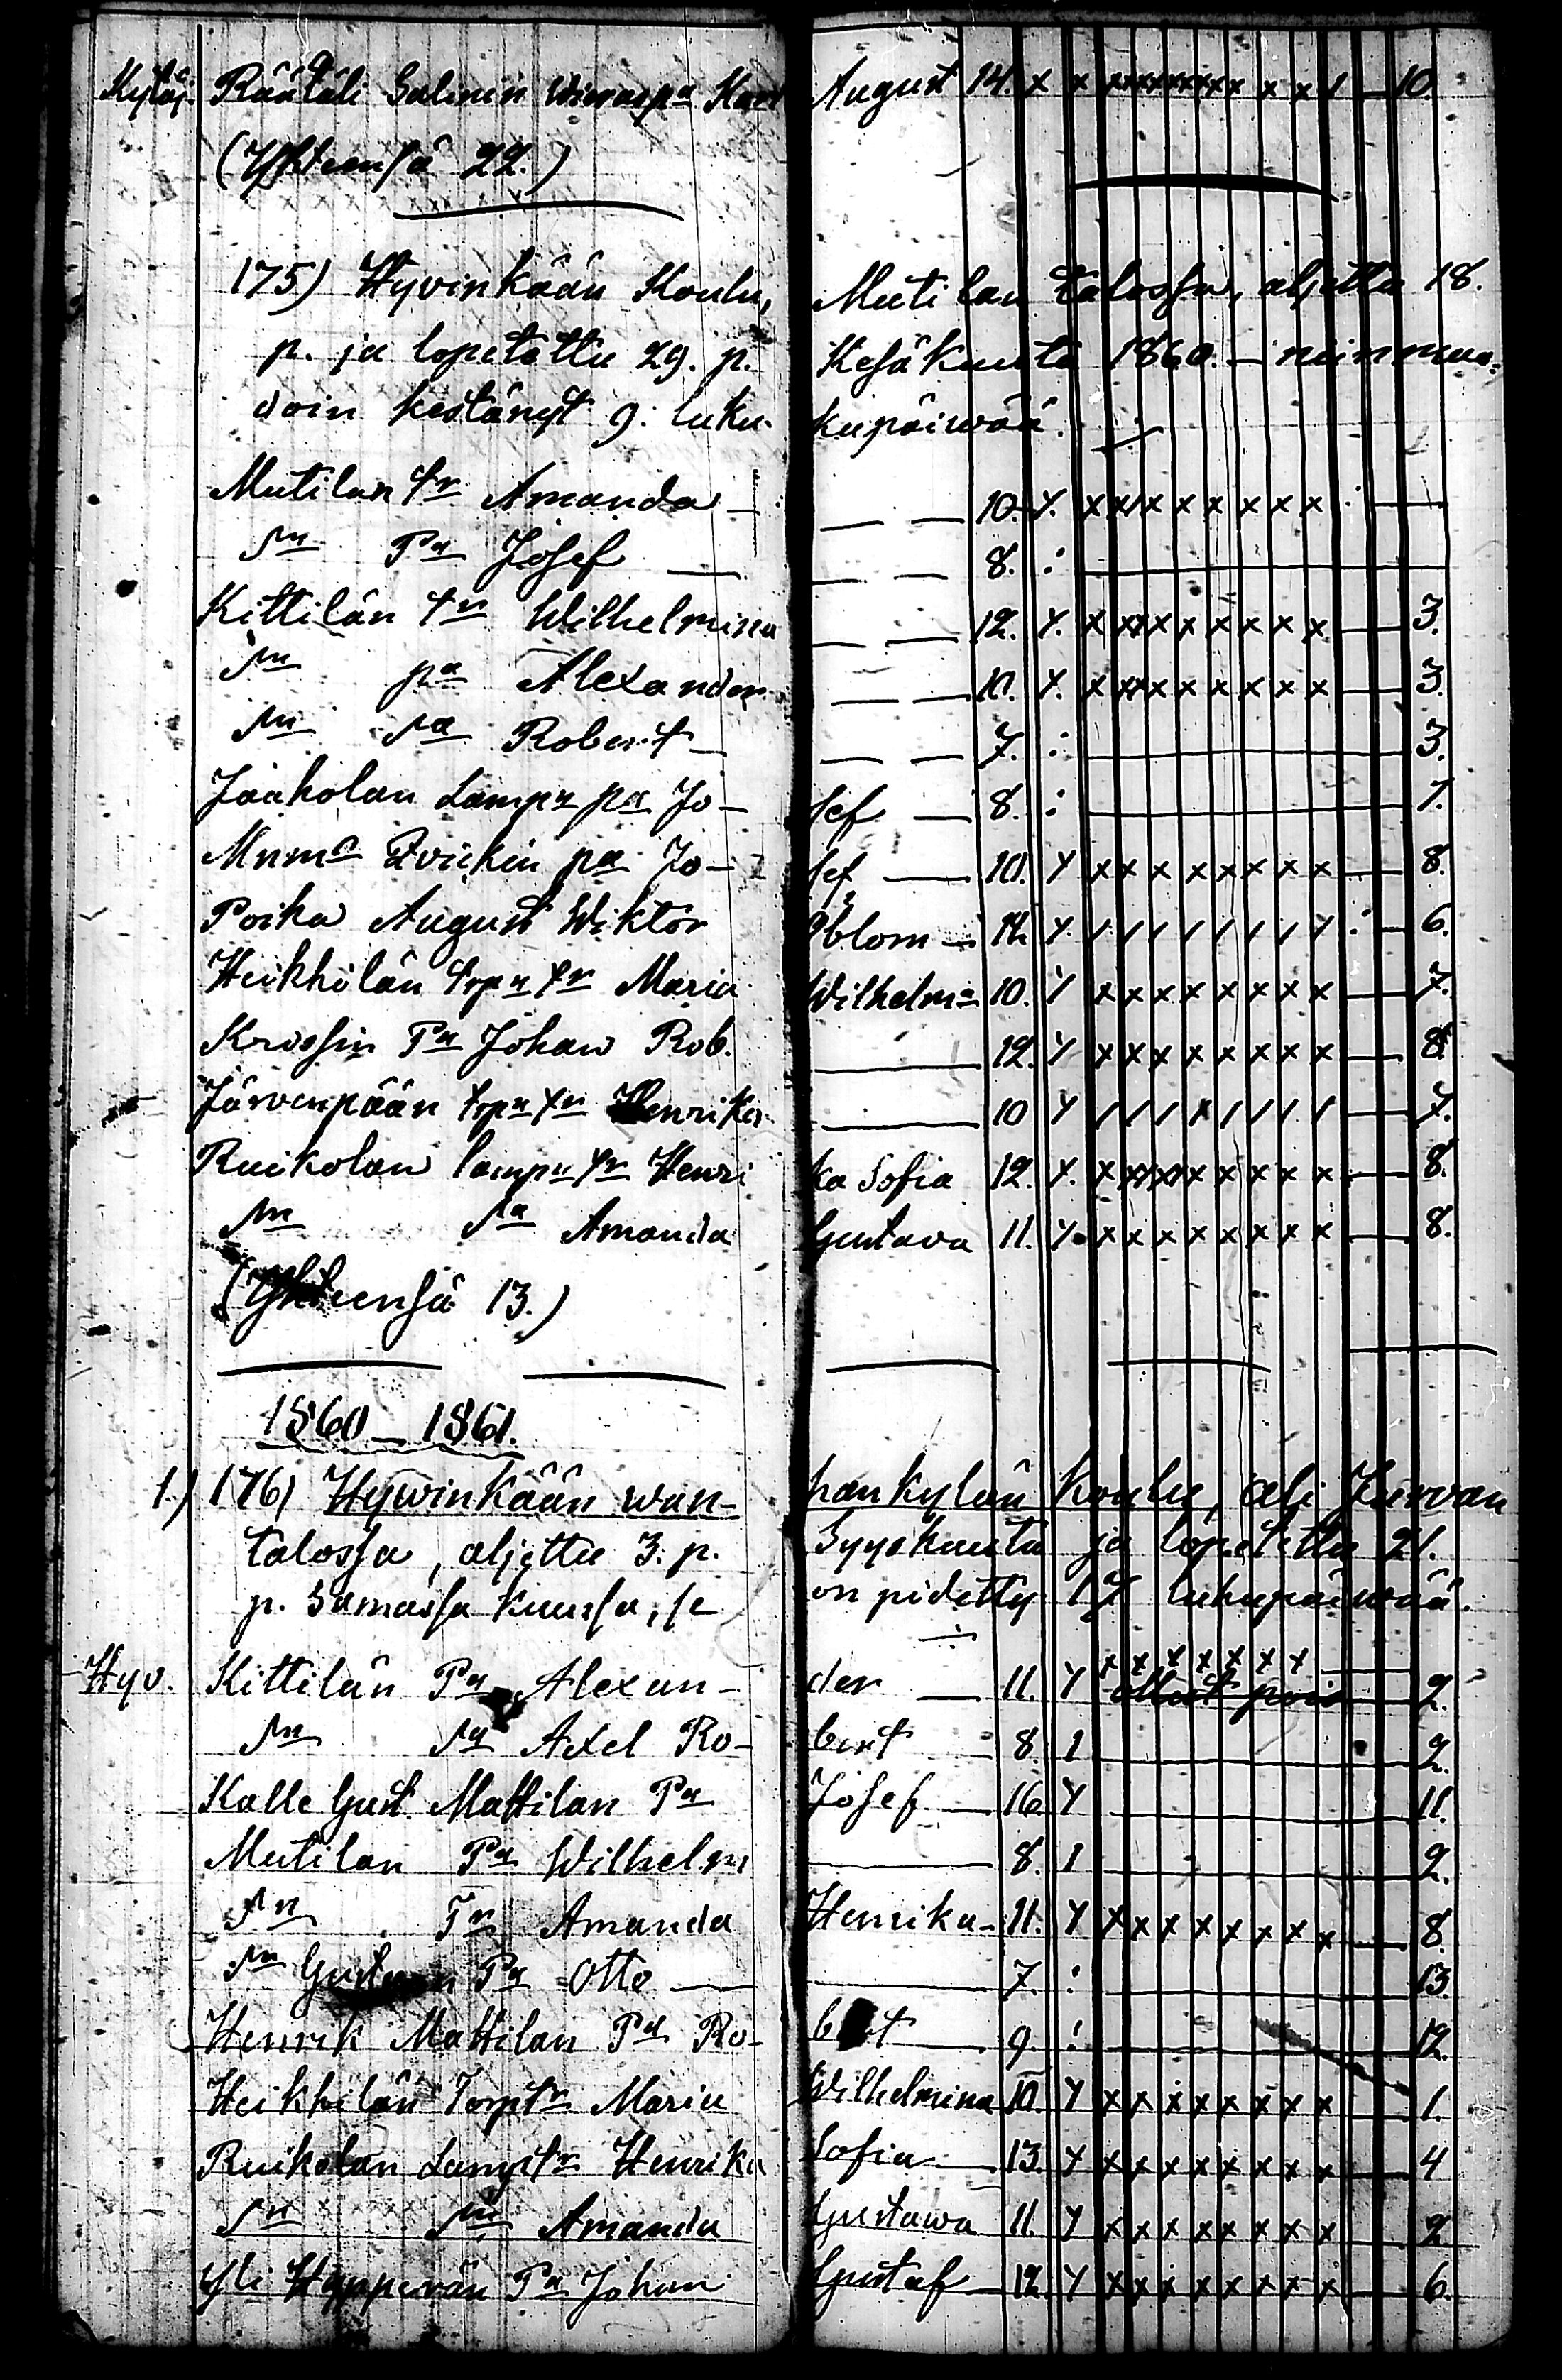 Kytäj. Räätäli Salmin Karl August 14. x x x x x x x x x x x x x 1 — 10.
(Yhtensä 22.)
175) Hyvinkään Koulu, Mutilan talossa, aljettu 18.
p. ja lopetettu 29. p. Kesäkuuta 1860. — niin muo-
doin kestänyt 9: luku- kupäiwää.
Mutilan tr Amanda — 10. Y. x x x x x x x x x
Sn Pa Josef — 8. :
Kittilän tr Wilhelmina — 12. Y. x x x x x x x x x — 3.
Sn pa Alexander — 10. Y. x x x x x x x x x — 3.
Sn Sa Robert — 7. : — 3.
Jaakolan Lampn pa Jo- sef — 8. : — 7.
pa Jo- sef — 10. Y x x x x x x x x — 8.
Poika August Wiktor Öblom — 12. Y / / / / / / / / : — 6.
Heikkilän torpn tr Maria Wilhelma 10. Y x x x x x x x x — 7.
Krossin Pa Johan Rob. — 12. Y x x x x x x x x — 8.
Järvenpään torpn tr Henrika — 10 Y / / / x / / / / — 7.
Ruikolan lampn tr Henri ka Sofia 12. Y. x x x x x x x x x — 8.
Sn Sa Amanda Gustava 11. Y. x x x x x x x x — 8.
(Yhteensä 13.)
1860 — 1861.
1.) 176) Hywinkään wan- han kylän Koulu, ali Kurwan
talossa, aljettu 3. p. Syyskuuta ja lopetettu 21.
p. Samassa kuussa, se on pidetty 17 lukupäiwää.
Hyv. Kittilän Pa Alexan- der — 11. Y x x x x x x x ollut pois — 2.
Sn Sa Axel Ro- bert — 8. 1 — 2.
Kalle Gust. Mattilan Pa Josef — 16 Y — 11.
Mutilan Pa Wilhelm — 8. 1 — 2.
Sn Tr Amanda Henrika — 11. Y x x x x x x x x — 8.
Sn Pa Otto — 7. : 13.
Henrik Mattilan Pa Ro- bert — 9. : — 12.
Heikkilän Torptr Maria Wilhelmina 10. Y x x x x x x x x — 1.
Ruikolan Lamptr Henrika Sofia — 13. Y x x x x x x x x — 4
Sn Sn Amanda Gustawa 11. Y x x x x x x x x 2
Yli Hyppärän Pa Johan Gustaf — 12. Y x x x x x x x x — 6.